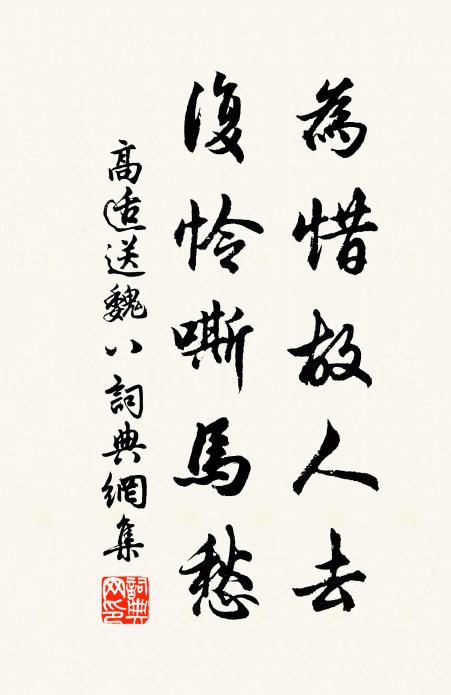 為惜故人去
復怜嘶馬愁
高适送魏八詞典網集
詞典網印